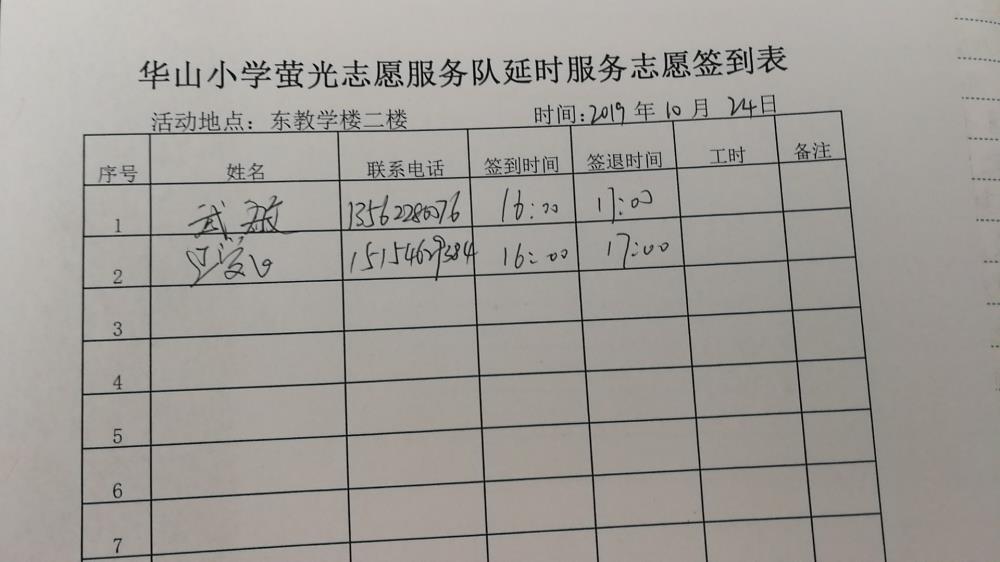 华山小学萤光志愿服务队延时服务志愿签到表
活动地点：东教学楼二楼 时间:2019年10月24日
序号 姓名 联系电话 签到时间 签退时间 工时 备注
1 武 13562280076 16:00 17:00
2 15154629384 16:00 17:00
3
4
5
6
7